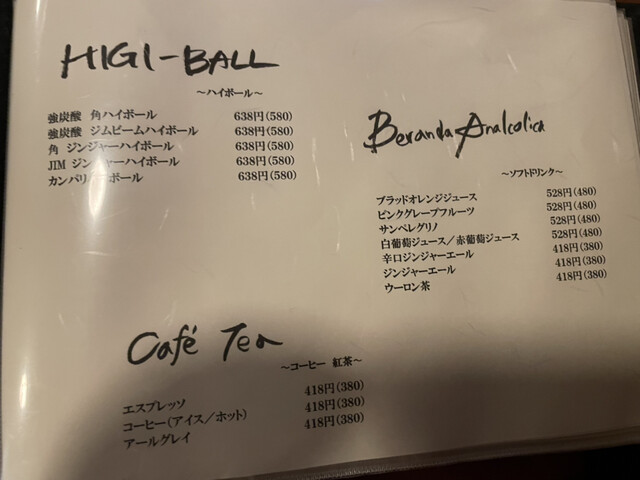 HIGI-BALL
～ハイボール～
強炭酸 角ハイボール 638円(580)
強炭酸 ジムビームハイボール 638円(580)
角 ジンジャーハイボール 638円(580)
JIM ジンジャーハイボール 638円(580)
カンパリ ボール 638円(580)
Beranda Analcolica
～ソフトドリンク～
ブラッドオレンジジュース 528円(480)
ピンクグレープフルーツ 528円(480)
サンペレグリノ 528円(480)
白葡萄ジュース／赤葡萄ジュース 528円(480)
辛口ジンジャーエール 418円(380)
ジンジャーエール 418円(380)
ウーロン茶 418円(380)
Café Tea
～コーヒー 紅茶～
エスプレッソ 418円(380)
コーヒー(アイス／ホット) 418円(380)
アールグレイ 418円(380)